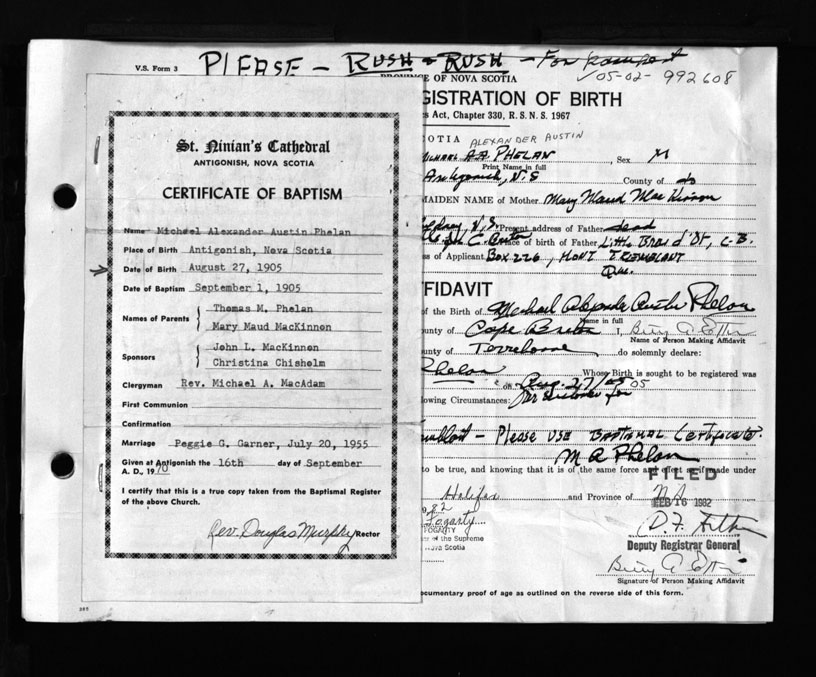 V.S. Form 3
PLEASE - RUSH & RUSH - For passport
PROVINCE OF NOVA SCOTIA
05-02- 992608
St. Ninian's Cathedral
ANTIGONISH, NOVA SCOTIA
CERTIFICATE OF BAPTISM
Name Michael Alexander Austin Phelan
Place of Birth Antigonish, Nova Scotia
Date of Birth August 27, 1905
Date of Baptism September 1, 1905
Names of Parents Thomas M. Phelan
Mary Maud MacKinnon
Sponsors John L. MacKinnon
Christina Chisholm
Clergyman Rev. Michael A. MacAdam
First Communion
Confirmation
Marriage Peggie G. Garner, July 20, 1955
Given at Antigonish the 16th day of September
A. D., 1970
I certify that this is a true copy taken from the Baptismal Register
of the above Church.
Rev. Douglas Murphy Rector
GISTRATION OF BIRTH
s Act, Chapter 330, R. S. N. S. 1967
COTIA ALEXANDER AUSTIN
AA PHELAN, Sex M
Print Name in full
Antigonish, N.S County of do
MAIDEN NAME of Mother Mary Maud MacKinnon
N.S. Present address of Father dead
Place of birth of Father Little Bras d'Or, C-B.
ss of Applicant Box 226, MONT TREMBLANT
Que.
FFIDAVIT
of the Birth of Michael Alexander Austin Phelan
Name in full
ounty of Cape Breton I,
Name of Person Making Affidavit
unty of Terrebonne do solemnly declare:
Phelan Whose Birth is sought to be registered was
on Aug. 27/05 05
lowing Circumstances:
- PLEASE USE BAPTISMAL Certificate.
M A Phelan
to be true, and knowing that it is of the same force and effect as if made under
FILED
Halifax and Province of N.S.
FEB 16 1982
982
Fogarty
FOGARTY
of the Supreme
Nova Scotia
Deputy Registrar General
Signature of Person Making Affidavit
ocumentary proof of age as outlined on the reverse side of this form.